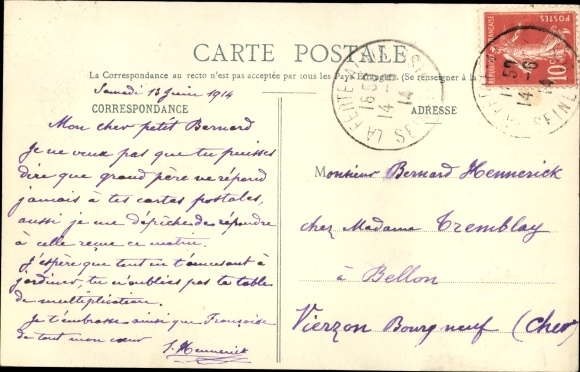 CARTE POSTALE
La Correspondance au recto n'est pas acceptée par tous les Pays Étrangers. (Se renseigner à la
Samedi 13 Juin 1914
CORRESPONDANCE
Mon cher petit Bernard
Je ne veux pas que tu puisses
dire que grand père ne répond
jamais à tes cartes postales,
aussi je me dépêche de répondre
à celle reçue ce matin.
J'espère que tout en t'amusant à
jardiner, tu n'oublies pas ta table
de multiplication.
Je t'embrasse ainsi que Françoise
de tout mon cœur
J. Hennerick
ADRESSE
Monsieur Bernard Hennerick
chez Madame Tremblay
à Bellon
Vierzon Bourgneuf (Cher)
LA FERTE
16 5
14
14
SEINE
REPUBLIQUE FRANÇAISE
POSTES
10
14 -6
14